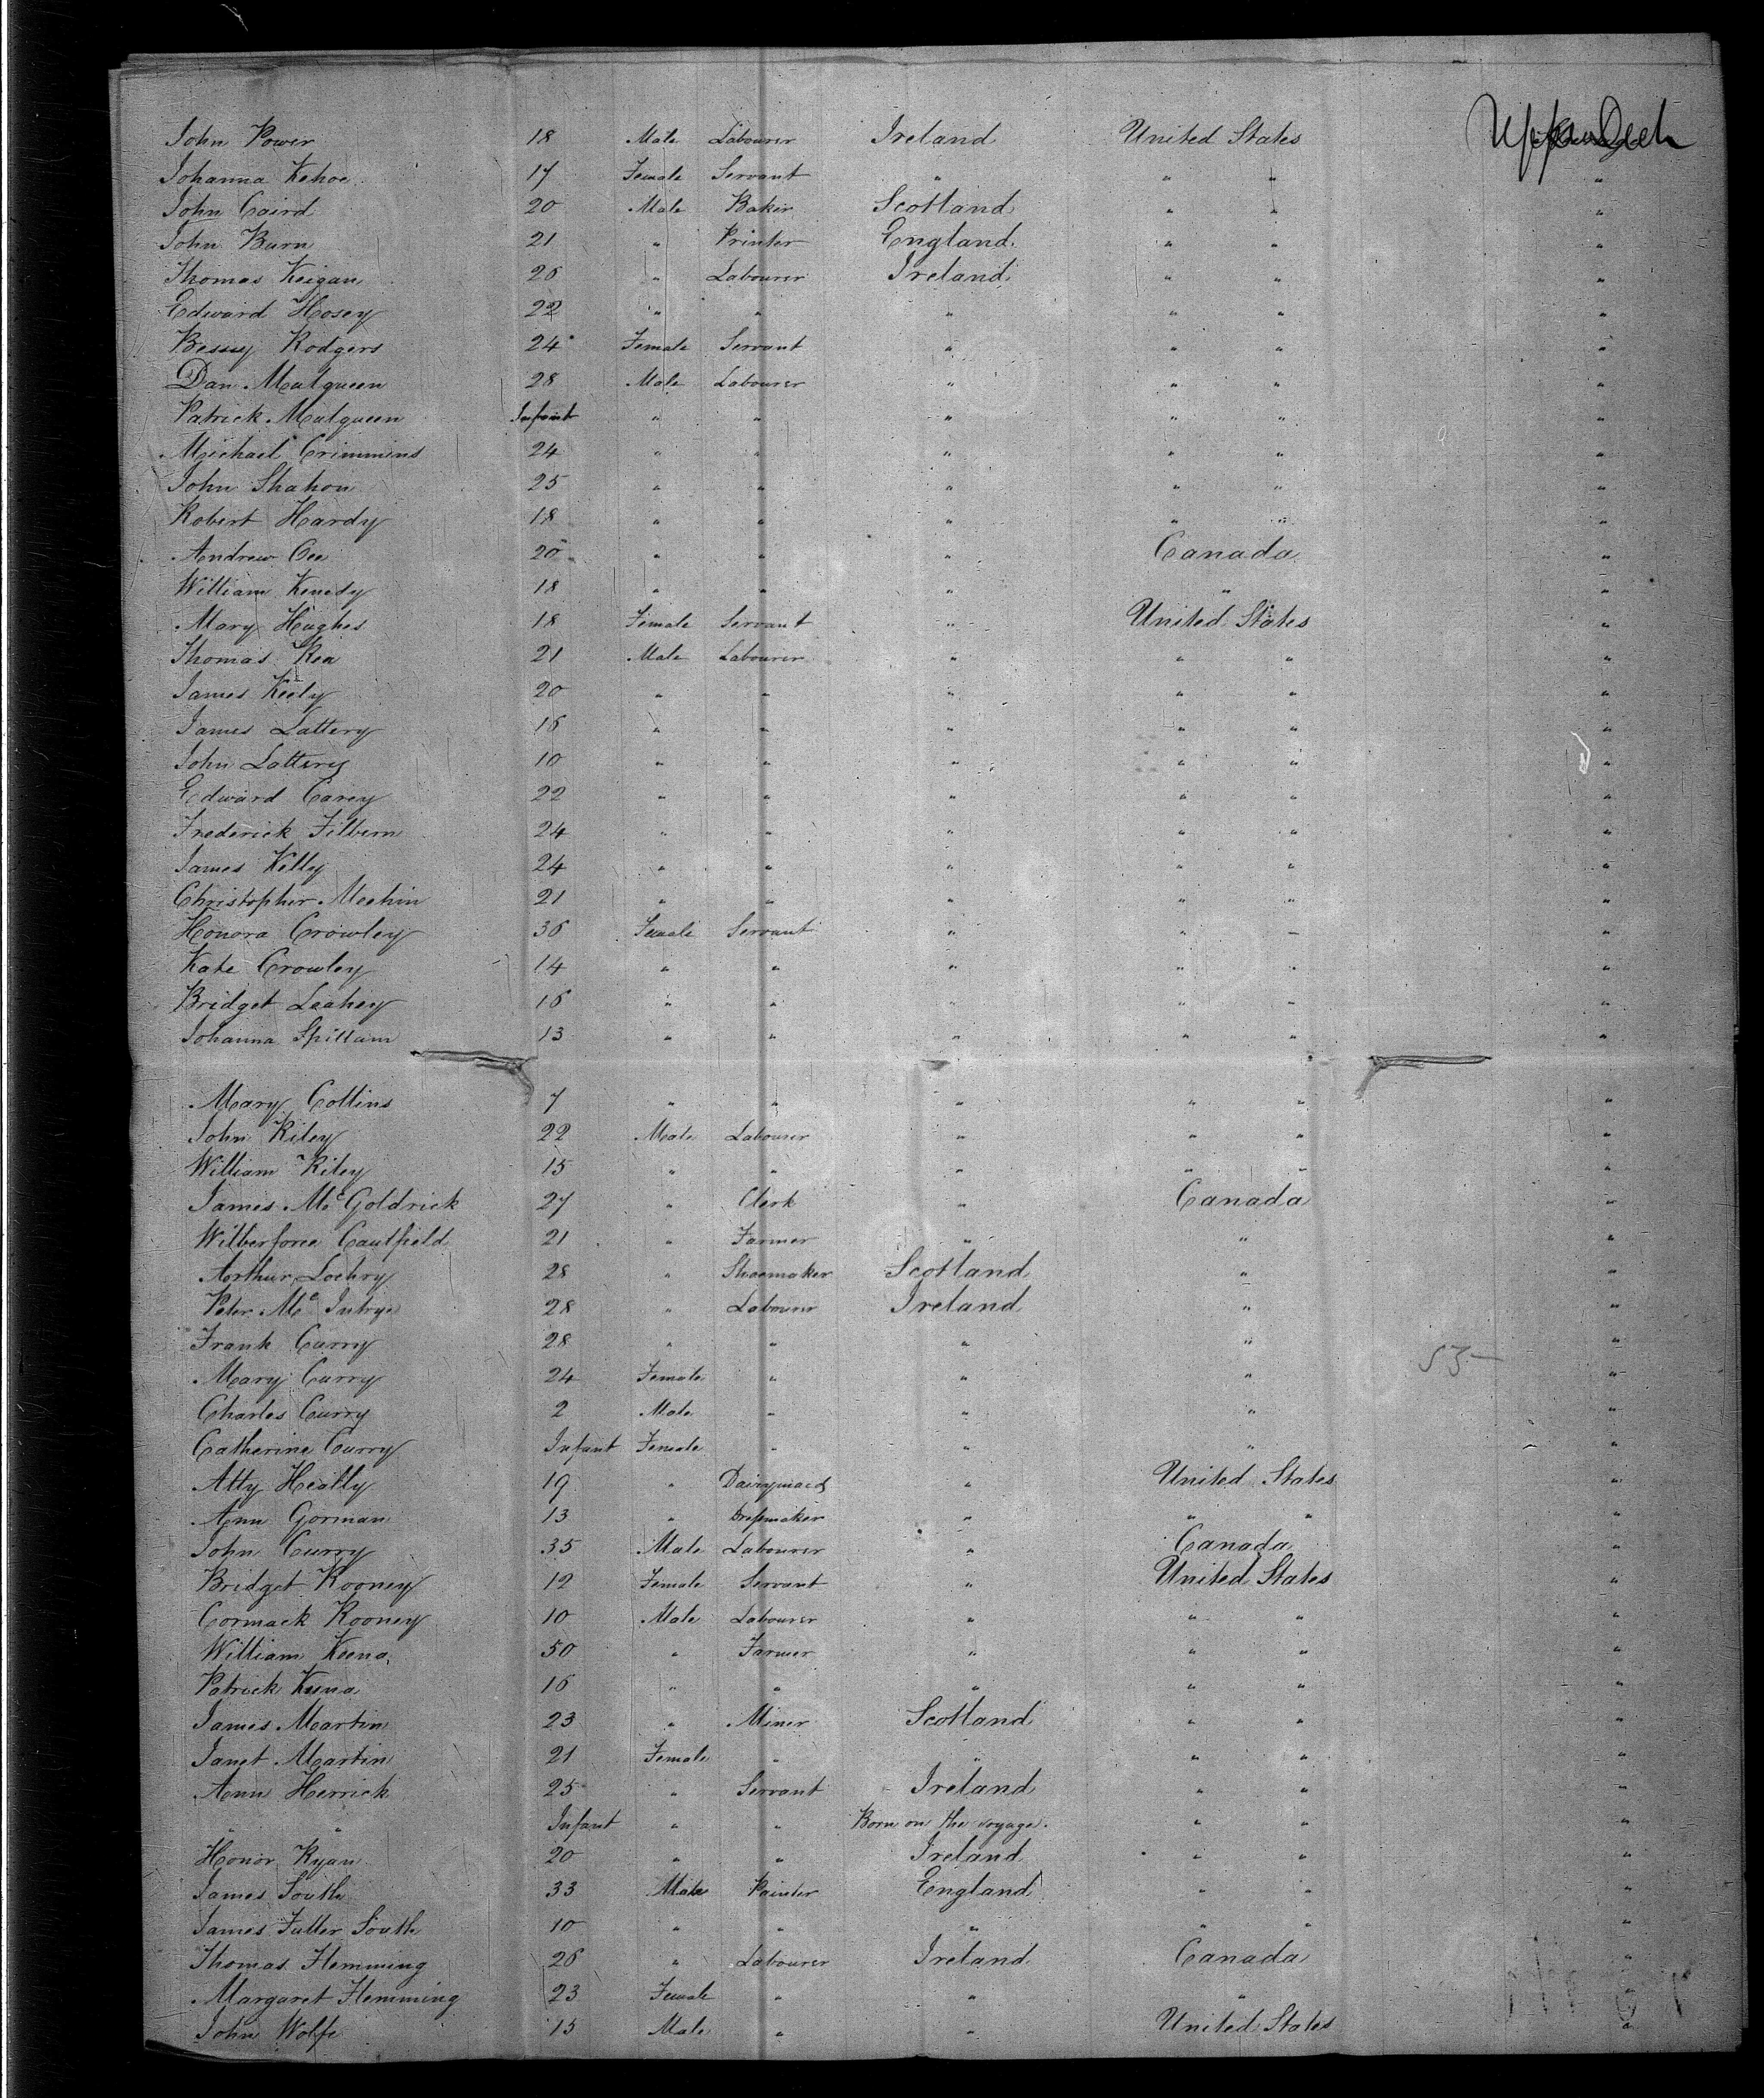 John Power 18 Male Labourer Ireland United States Upper Deck
Johanna Kehoe 17 Female Servant " " " "
John Caird 20 Male Baker Scotland " " "
John Burn 21 " Printer England " " "
Thomas Keigan 26 " Labourer Ireland " " "
Edward Hosey 22 " " " " " "
Bessy Rodgers 24 Female Servant " " " "
Dan Mulqueen 28 Male Labourer " " " "
Patrick Mulqueen Infant " " " " " "
Michael Crimmins 24 " " " " " "
John Shahon 25 " " " " " "
Robert Hardy 18 " " " " " "
Andrew 20 " " " Canada "
William Kenedy 18 " " " " "
Mary Hughes 18 Female Servant " United States "
Thomas Rea 21 Male Labourer " " " "
James Keely 20 " " " " " "
James Lattery 16 " " " " " "
John Lattery 10 " " " " " "
Edward Carey 22 " " " " " "
Frederick Filburn 24 " " " " " "
James Kelly 24 " " " " " "
Christopher Meehin 21 " " " " " "
Honora Crowley 36 Female Servant " " " "
Kate Crowley 14 " " " " " "
Bridget Leahey 16 " " " " " "
Johanna Spillam 13 " " " " " "
Mary Collins 7 " " " " " "
John Riley 22 Male Labourer " " " "
William Riley 15 " " " " " "
James McGoldrick 27 " Clerk " Canada "
Wilberforce Caulfield 21 " Farmer " " "
Arthur Lochry 28 " Shoemaker Scotland " "
Peter McIntrye 28 " Labourer Ireland " "
Frank Curry 28 " " " " "
Mary Curry 24 Female " " " "
Charles Curry 2 Male " " " "
Catherine Curry Infant Female " " " "
Atty Heally 19 " Dairymaid " United States "
Ann Gorman 13 " Dressmaker " " " "
John Curry 35 Male Labourer " Canada "
Bridget Rooney 12 Female Servant " United States "
Cormack Rooney 10 Male Labourer " " " "
William Keena 50 " Farmer " " " "
Patrick Keena 16 " " " " " "
James Martin 23 " Miner Scotland " " "
Janet Martin 21 Female " " " " "
Ann Herrick 25 " Servant Ireland " " "
" " Infant " " Born on the voyage. " " "
Honor Ryan 20 " " Ireland " " "
James South 33 Male Painter England " " "
James Fuller South 10 " " " " " "
Thomas Flemming 26 " Labourer Ireland Canada "
Margaret Flemming 23 Female " " " "
John Wolfe 15 Male " " United States "